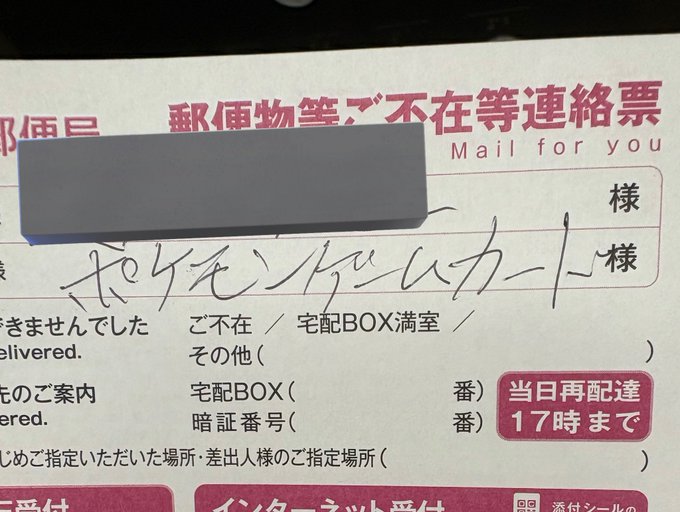 郵便局 郵便物等ご不在等連絡票
Mail for you
様
様 ポケモンゲームカード 様
できませんでした ご不在 / 宅配BOX満室 /
elivered. その他( )
先のご案内 宅配BOX( 番) 当日再配達
ered. 暗証番号( 番) 17時まで
じめご指定いただいた場所・差出人様のご指定場所( )
受付 インターネット受付 添付シールの